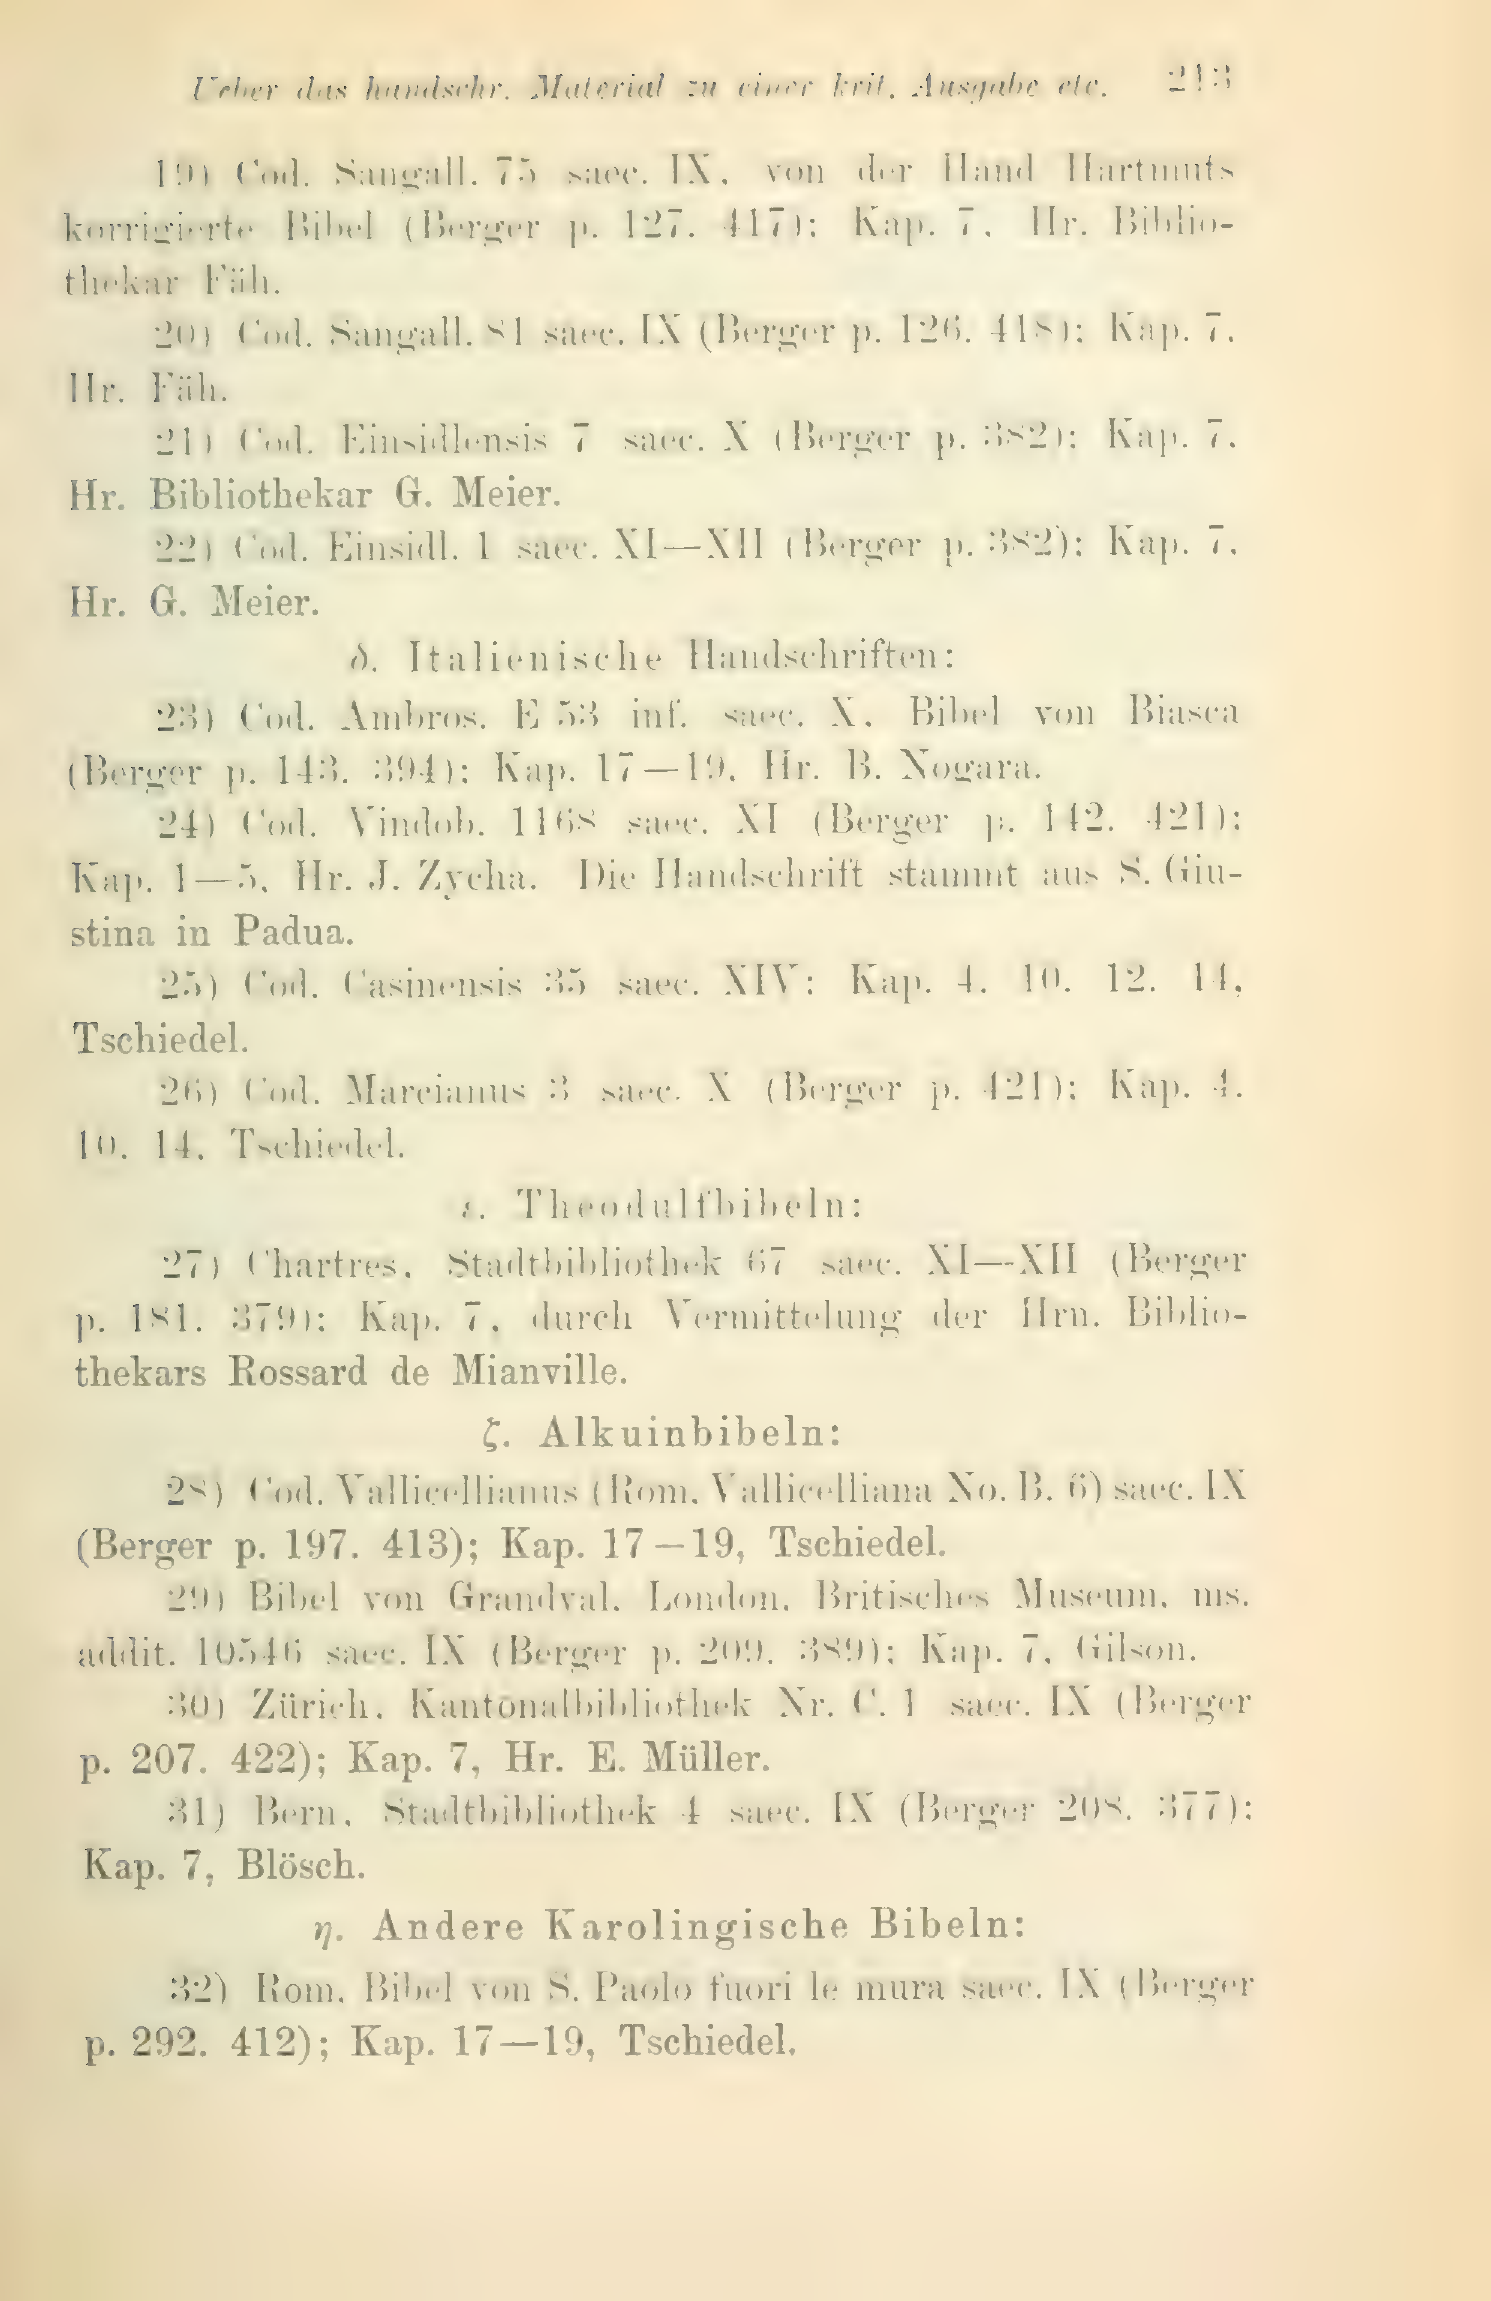 Ueber das handschr. Material zu einer krit. Ausgabe etc. 243
19) Cod. Sangall. 75 saec. IX, von der Hand Hartmuts
korrigierte Bibel (Berger p. 127. 417); Kap. 7, Hr. Biblio-
thekar Fäh.
20) Cod. Sangall. 81 saec. IX (Berger p. 126. 418); Kap. 7,
Hr. Fäh.
21) Cod. Einsidlensis 7 saec. X (Berger p. 382); Kap. 7,
Hr. Bibliothekar G. Meier.
22) Cod. Einsidl. 1 saec. XI—XII (Berger p. 382); Kap. 7,
Hr. G. Meier.
δ. Italienische Handschriften:
23) Cod. Ambros. E 53 inf. saec. X, Bibel von Biasca
(Berger p. 143. 394); Kap. 17—19, Hr. B. Nogara.
24) Cod. Vindob. 1168 saec. XI (Berger p. 142. 421);
Kap. 1—5, Hr. J. Zycha. Die Handschrift stammt aus S. Giu-
stina in Padua.
25) Cod. Casinensis 35 saec. XIV; Kap. 4. 10. 12. 14,
Tschiedel.
26) Cod. Marcianus 3 saec. X (Berger p. 421); Kap. 4.
10. 14, Tschiedel.
ε. Theodulfbibeln:
27) Chartres, Stadtbibliothek 67 saec. XI—XII (Berger
p. 181. 379); Kap. 7, durch Vermittelung der Hrn. Biblio-
thekars Rossard de Mianville.
ζ. Alkuinbibeln:
28) Cod. Vallicellianus (Rom, Vallicelliana No. B. 6) saec. IX
(Berger p. 197. 413); Kap. 17—19, Tschiedel.
29) Bibel von Grandval, London, Britisches Museum, ms.
addit. 10546 saec. IX (Berger p. 209. 389); Kap. 7, Gilson.
30) Zürich, Kantonalbibliothek Nr. C. 1 saec. IX (Berger
p. 207. 422); Kap. 7, Hr. E. Müller.
31) Bern, Stadtbibliothek 4 saec. IX (Berger 208. 377);
Kap. 7, Blösch.
η. Andere Karolingische Bibeln:
32) Rom, Bibel von S. Paolo fuori le mura saec. IX (Berger
p. 292. 412); Kap. 17—19, Tschiedel.